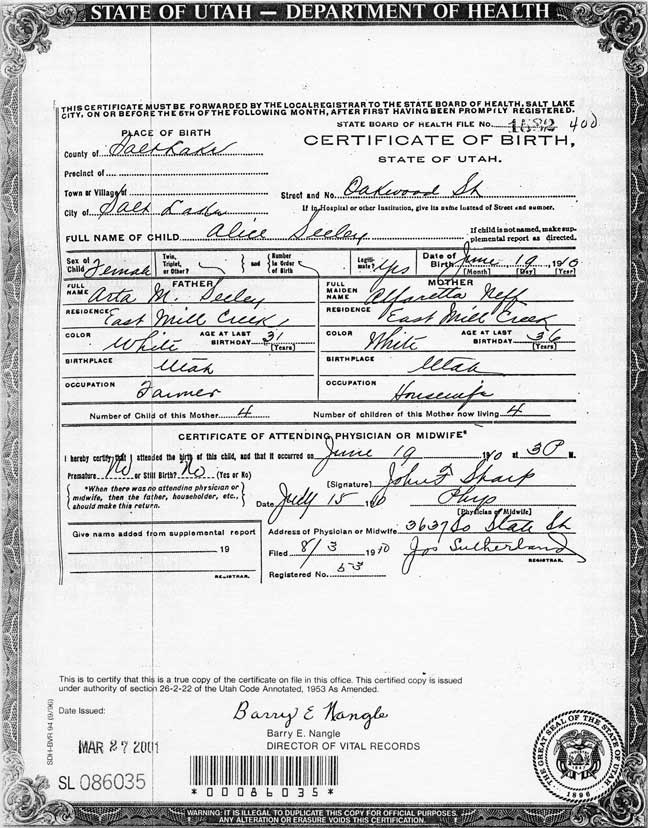 STATE OF UTAH — DEPARTMENT OF HEALTH
THIS CERTIFICATE MUST BE FORWARDED BY THE LOCAL REGISTRAR TO THE STATE BOARD OF HEALTH, SALT LAKE
CITY, ON OR BEFORE THE 5TH OF THE FOLLOWING MONTH, AFTER FIRST HAVING BEEN PROMPTLY REGISTERED.
STATE BOARD OF HEALTH FILE No. 400
PLACE OF BIRTH
CERTIFICATE OF BIRTH,
County of Salt Lake
STATE OF UTAH.
Precinct of
Town or Village of
Street and No. Oakwood St
City of Salt Lake
If in Hospital or other Institution, give its name instead of Street and number.
FULL NAME OF CHILD Alice Seeley
If child is not named, make supplemental report as directed.
Sex of Child Female Twin, Triplet, or Other? and Number in Order of Birth Legitimate? Yes Date of Birth June 19 1910
(Month) (Day) (Year)
FATHER MOTHER
FULL NAME Arta M. Seeley FULL MAIDEN NAME Alfaretta Neff
RESIDENCE East Mill Creek RESIDENCE East Mill Creek
COLOR White AGE AT LAST BIRTHDAY 31 (Years) COLOR White AGE AT LAST BIRTHDAY 36 (Years)
BIRTHPLACE Utah BIRTHPLACE Utah
OCCUPATION Farmer OCCUPATION Housewife
Number of Child of this Mother 4 Number of children of this Mother now living 4
CERTIFICATE OF ATTENDING PHYSICIAN OR MIDWIFE*
I hereby certify that I attended the birth of this child, and that it occurred on June 19 1910 at 3 P M.
Premature No or Still Birth? No (Yes or No)
[Signature] John F Sharp
*When there was no attending physician or
midwife, then the father, householder, etc.,
should make this return.
Date July 15 1910 Phys
[Physician or Midwife]
Give name added from supplemental report
Address of Physician or Midwife 3637 So State St
19
Filed 8/3 1910 Jos Sutherland
REGISTRAR.
REGISTRAR.
Registered No. 53
This is to certify that this is a true copy of the certificate on file in this office. This certified copy is issued
under authority of section 26-2-22 of the Utah Code Annotated, 1953 As Amended.
Date Issued:
Barry E Nangle
Barry E. Nangle
DIRECTOR OF VITAL RECORDS
MAR 27 2001
SDH-BVR 94 (9/96)
SL 086035
*00086035*
THE GREAT SEAL OF THE STATE OF UTAH
1896
WARNING: IT IS ILLEGAL TO DUPLICATE THIS COPY FOR OFFICIAL PURPOSES.
ANY ALTERATION OR ERASURE VOIDS THIS CERTIFICATION.